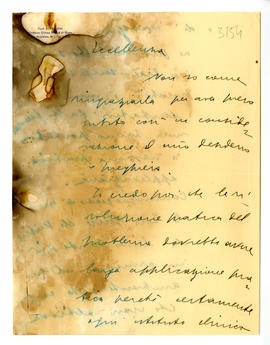 3154
Eccellenza
Non so come
ringraziarla per aver preso
subito con
il mio desiderio
e preghiera.
Io credo poi che la ri
soluzione pratica del
problema dovrebbe avere
larga applicazione pra
tica perchè certamente
ogni istituto clinico